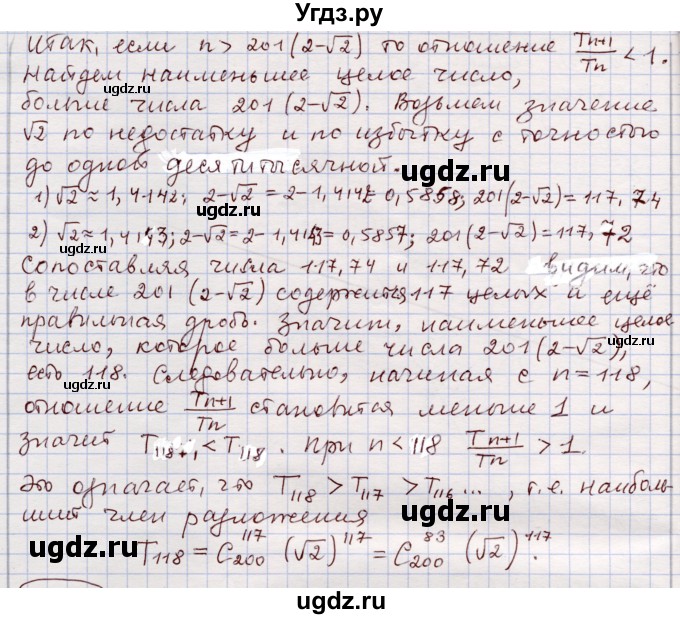 Угдз.ру
Итак, если n > 201(2-√2) то отношение T_{n+1}/T_n < 1.
Найдем наименьшее целое число,
больше числа 201(2-√2). Возьмем значение
√2 по недостатку и по избытку с точностью
до одной десятитысячной.
1) √2 ≈ 1,4142; 2-√2 = 2-1,4142 = 0,5858; 201(2-√2) = 117,74
2) √2 ≈ 1,4143; 2-√2 = 2-1,4143 = 0,5857; 201(2-√2) = 117,72
Сопоставляя числа 117,74 и 117,72 видим, что
в числе 201(2-√2) содержится 117 целых и ещё
правильная дробь. Значит, наименьшее целое
число, которое больше числа 201(2-√2),
есть 118. Следовательно, начиная с n=118,
отношение T_{n+1}/T_n становится меньше 1 и
значит T_{118+1} < T_{118}. При n < 118 T_{n+1}/T_n > 1.
Это означает, что T_{118} > T_{117} > T_{116}..., т.е. наиболь-
ший член разложения
T_{118} = C_{200}^{117} (√2)^{117} = C_{200}^{83} (√2)^{117}.
ugdz.ru
ugdz.ru
ugdz.ru
ugdz.ru
ugdz.ru
ugdz.ru
ugdz.ru
ugdz.ru
ugdz.ru
ugdz.ru
ugdz.ru
ugdz.ru
ugdz.ru